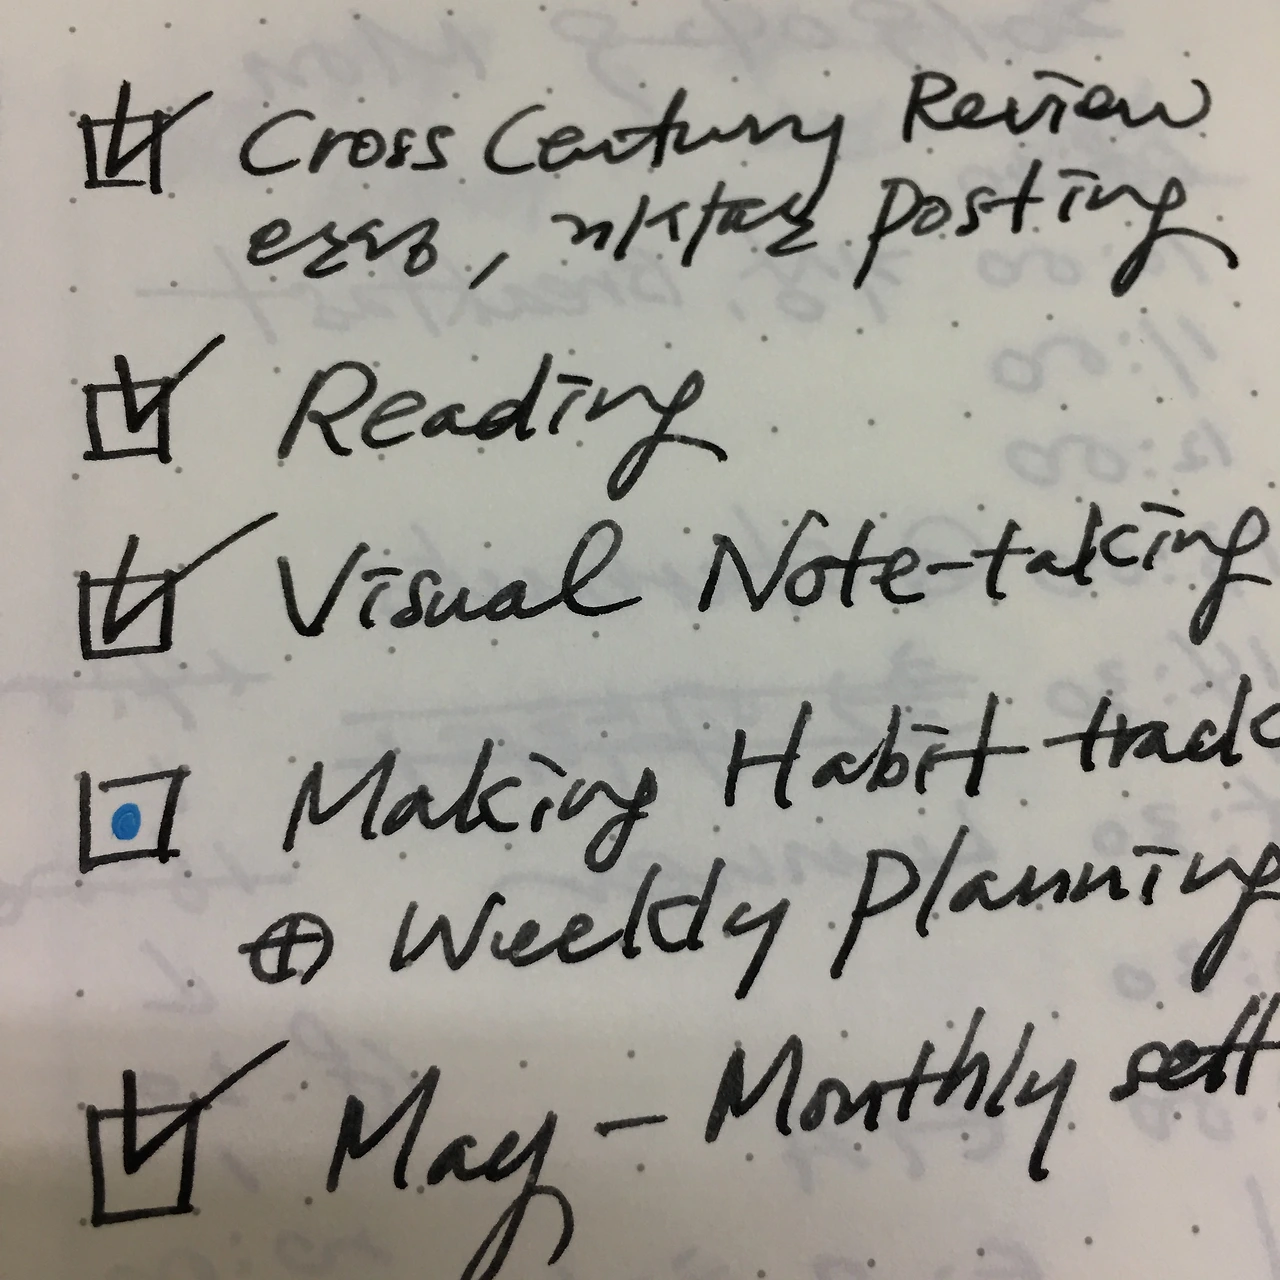 Cross Century Review
완성, posting
Reading
Visual Note-taking
Making Habit track
⊕ Weekly planning
May - Monthly sett